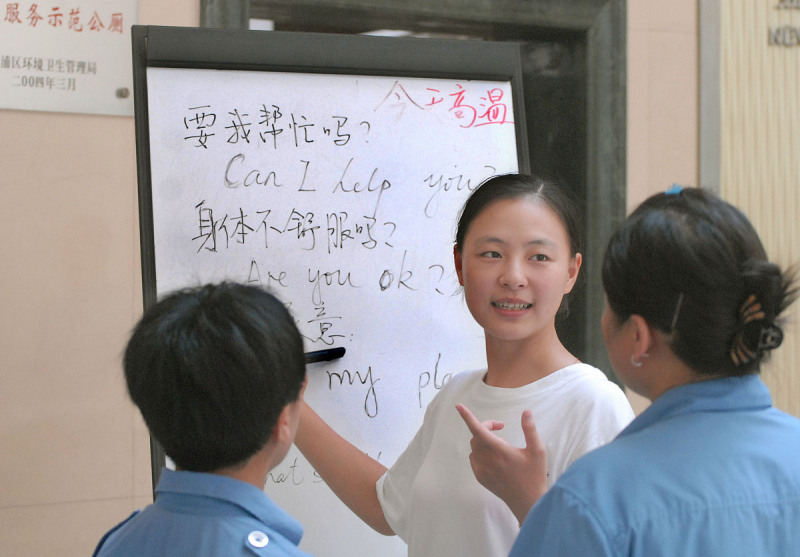 服务示范公厕
浦区环境卫生管理局
二00四年三月
今 高温
要我帮忙吗?
Can I help you?
身体不舒服吗?
Are you ok?
意
my